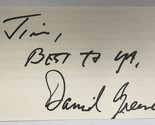 Jim,
BEST TO YA,
Daniel Greene